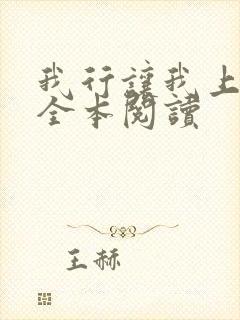 我行讓我上
全本閱讀
王赫